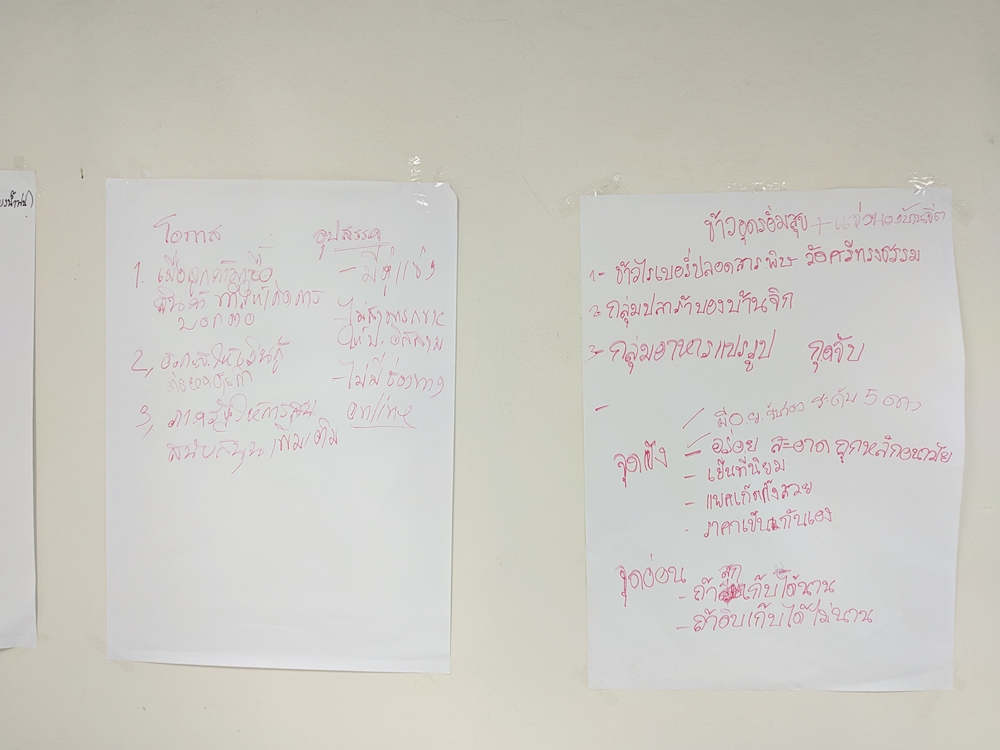 โอกาส
1. เมื่อลูกค้าซื้อ
สินค้า ทำให้เกิดการ
บอกต่อ
2, ธกส. ให้เงินกู้
3, ภาครัฐให้การสน
สนับสนุนเพิ่มเติม
อุปสรรค
- มีคู่แข่ง
- ไม่สามารถขาย
ให้ ป. อิสลาม
- ไม่มีช่องทาง
online
ข้าวอุดรอิ่มสุข + แจ่วบองบ้านจิก
1 - ข้าวไรเบอรี่ปลอดสารพิษ วัดศรีทรงธรรม
2 กลุ่มปลาร้าบองบ้านจิก
3 - กลุ่มอาหารแปรรูป กุดจับ
-
จุดแข็ง
- มี อ.ย. รับรอง ระดับ 5 ดาว
- อร่อย สะอาด ถูกหลักอนามัย
- เป็นที่นิยม
- แพคเก็ตกิ้งสวย
- ราคาเป็นกันเอง
จุดอ่อน
- ถ้าสุกเก็บได้นาน
- ถ้าดิบเก็บได้ไม่นาน